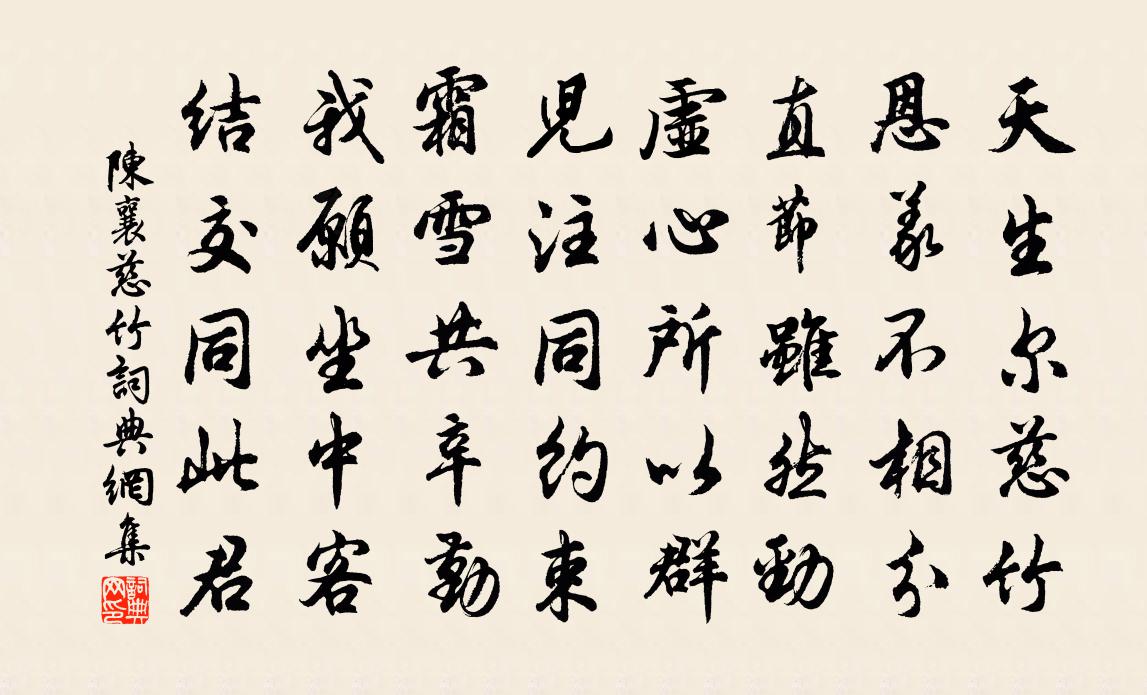 天生尔慈竹
恩義不相分
直節雖然勁
虛心所以群
児注同約束
霜雪共辛勤
我願坐中客
結交同此君
陳襄慈竹詞典網集
詞典网印